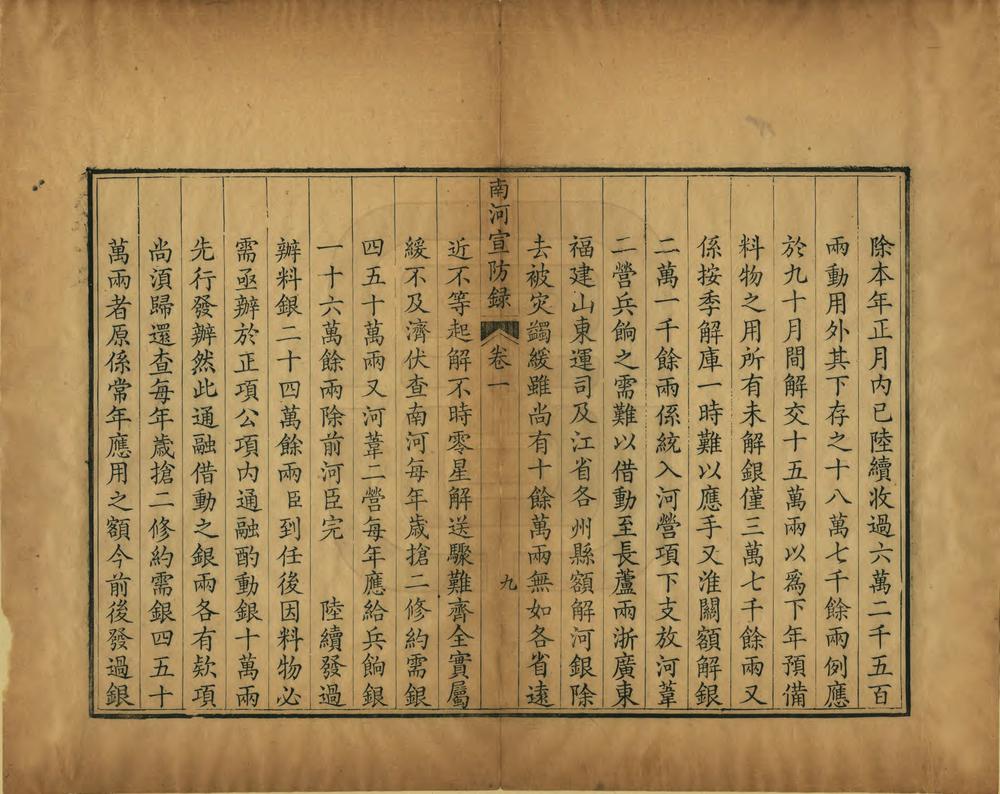 除本年正月內已陸續收過六萬二千五百
兩動用外其下存之十八萬七千餘兩例應
於九十月間解交十五萬兩以爲下年預備
料物之用所有未解銀僅三萬七千餘兩又
係按季解庫一時難以應手又淮關額解銀
二萬一千餘兩係統入河營項下支放河葦
二營兵餉之需難以借動至長蘆兩浙廣東
福建山東運司及江省各州縣額解河銀除
去被灾蠲緩雖尚有十餘萬兩無如各省遠
南河宣防録 卷一 九
近不等起解不時零星解送驟難齊全實屬
緩不及濟伏查南河每年歲搶二修約需銀
四五十萬兩又河葦二營每年應給兵餉銀
一十六萬餘兩除前河臣完 陸續發過
辦料銀二十四萬餘兩臣到任後因料物必
需亟辦於正項公項內通融酌動銀十萬兩
先行發辦然此通融借動之銀兩各有欵項
尚須歸還查每年歲搶二修約需銀四五十
萬兩者原係常年應用之額今前後發過銀